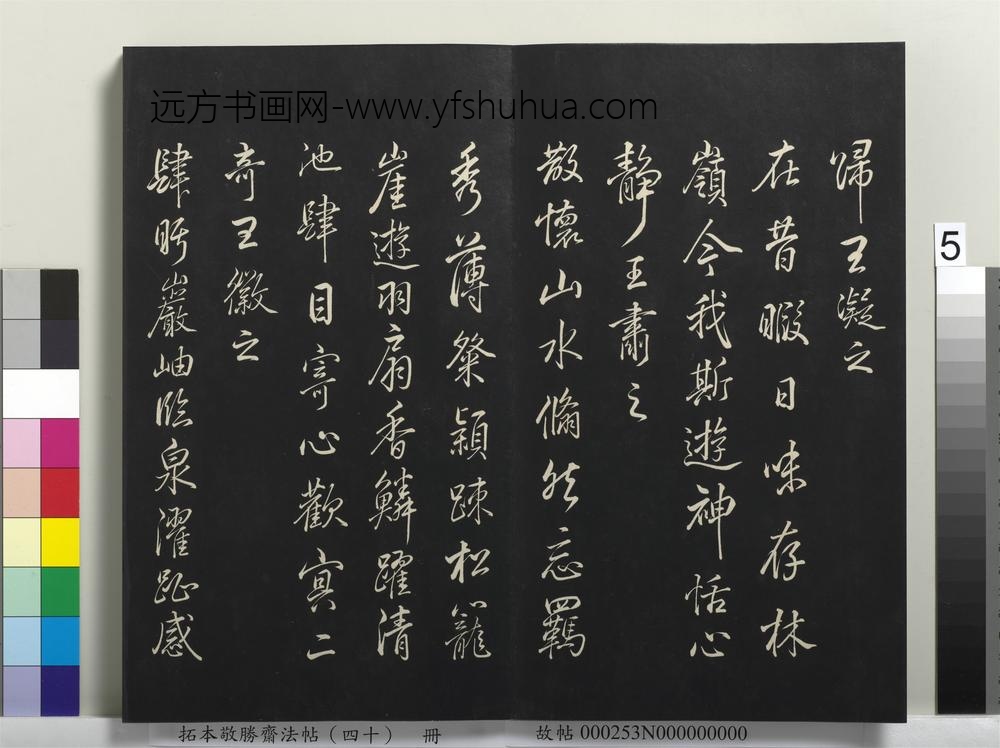 远方书画网-www.yfshuhua.com
歸王凝之
在昔暇日味存林
嶺今我斯遊神恬心
靜王肅之
散懷山水翛然忘羈
秀薄粲穎踈松籠
崖遊羽扇香鱗躍清
池肆目寄心歡寘二
奇王徽之
肆眄巖岫臨泉濯趾感
5
拓本敬勝齋法帖（四十） 冊
故帖 000253N000000000